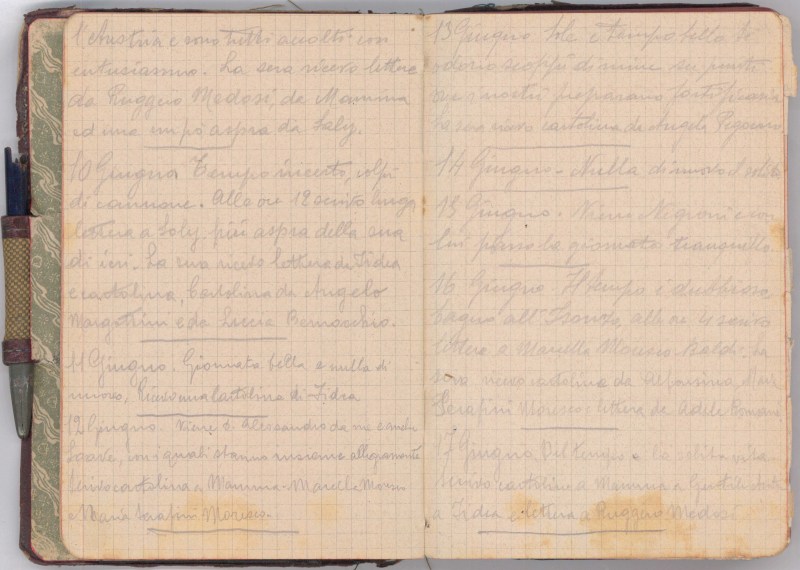 l'Austria e sono tutti accolti con
entusiasmo. La sera ricevo lettere
da Ruggero Medosi, da Mamma
ed una un pò aspra da Soly.
10 Giugno Tempo incerto, colpi
di cannone. Alle ore 12 scrivo lunga
lettera a Soly più aspra della sua
di ieri. La sera ricevo lettera da Fidea
e cartolina, Cartolina da Angelo
e da Lucia
11 Giugno. Giornata bella e nulla di
nuovo, Ricevo una cartolina di Fidea
12 Giugno. Viene Alessandro da me e
Soave, con i quali stiamo insieme allegramente
Scrivo cartolina a Mamma - Marcella
e Maria Serafini Moresco.
13 Giugno Sole e tempo bello si
odono scoppi di mine sui
che i nostri preparano fortificazioni
La sera ricevo cartolina da Angelo
14 Giugno - Nulla di nuovo il solito
15 Giugno. Viene Negroni e con
lui passo la giornata tranquilla.
16 Giugno. Il tempo è
bagno all'Isonzo, alle ore 4 scrivo
lettere a Marcella Moresco. La
sera ricevo cartolina da Maria
Serafini Moresco e lettera da Adele Romani
17 Giugno Bel tempo e la solita vita
scrivo cartoline a Mamma a
a Fidea e lettera a Ruggero Medosi